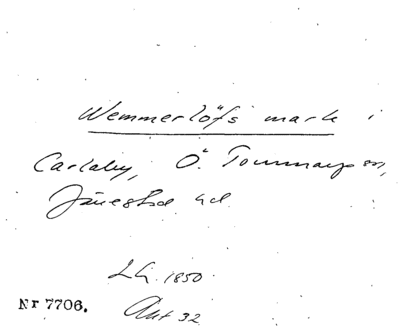 Wemmerlöfs mark i
Carlaby, Ö. Tommarps sn,
Järrestad hd.
LG. 1850
Nr 7706. Akt 32